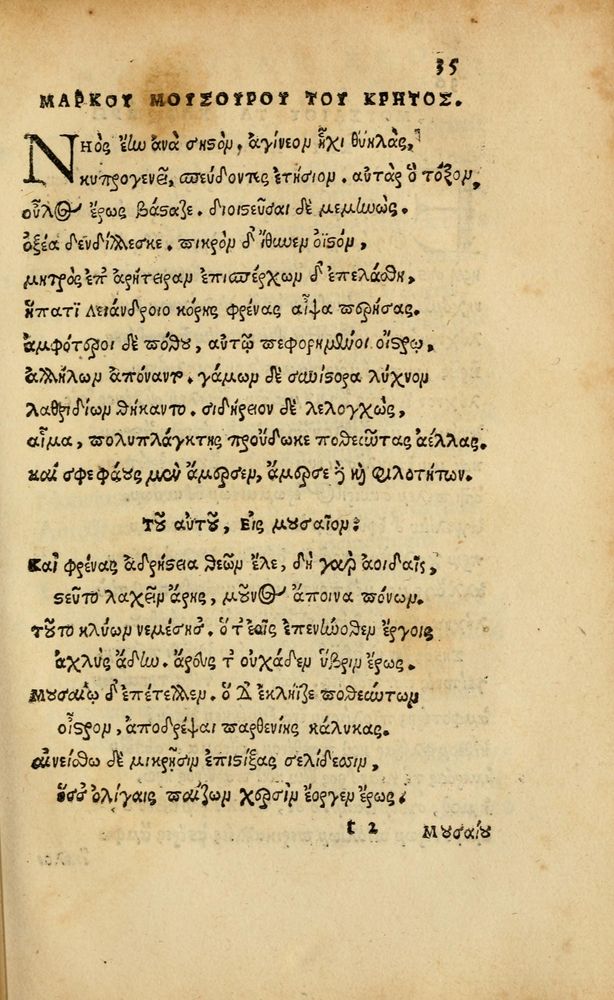 35
ΜΑΡΚΟΥ ΜΟΥΣΟΥΡΟΥ ΤΟΥ ΚΡΗΤΟΣ.
Νηὸς ἔην ἀνὰ σηστὸν, ἀγίνεον ἧχι θύηλὰς,
κυπρογενεῖ, σπεύδοντες ἐτήσιον. αὐτὰρ ὃ τόξον,
οὖλος ἔρως βάσταζε. διοϊστεῦσαι δὲ μεμηνὼς.
ὀξέα δενδίλλεσκε. πικρὸν δ' ἴθυνεν ὀϊστὸν,
μητρὸς ἐπ' ἀρήτειραν ἐπισπέρχων δ' ἐπελάθη,
ἥπατϊ Λειάνδροιο κόρης φρένας αἶψα πορήσας.
ἀμφότεροι δὲ πόθου, αὐτῷ πεφορημένοι οἴστρῳ,
ἀλλήλων ἀπόναντο. γάμων δὲ συνίστορα λύχνον
λαθριδίων θήκαντο. σιδήρειον δὲ λελογχὼς,
αἷμα, πολυπλάγκτης προύδωκε ποθεῦντας ἀέλλας.
καί σφε φάους μὲν ἄμερσεν, ἄμερσε ἢ καὶ φιλοτήτων.
τοῦ αὐτοῦ, Εἰς μουσαῖον:
Καὶ φρένας ἀδρήστεια θεῶν ἕλε, δὴ γὰρ ἀοιδαῖς,
στεῦτο λαχεῖν ἄρης, μοῦνος ἄποινα πόνων.
τοῦτο κλύων νεμέσησ'. ὅ τ' ἑαῖς ἐπενήνοθεν ἔργοις
ἀχλὺς ἄδην. ἄρους τ' οὐχάδεν ὕβριν ἔρως.
Μουσαίῳ δ' ἐπέτελλεν. ὁ δ' ἐκλήϊζε ποθεύντων
οἶστρον, ἀποδρέψαι παρθενίκης κάλυκας.
αἰνείσθω δὲ μικρῇσιν ἐπιστίξας σελίδεσσιν,
ὅσσ' ὀλίγαις παίζων χερσὶν ἔοργεν ἔρως.
t 2
Μουσαίου